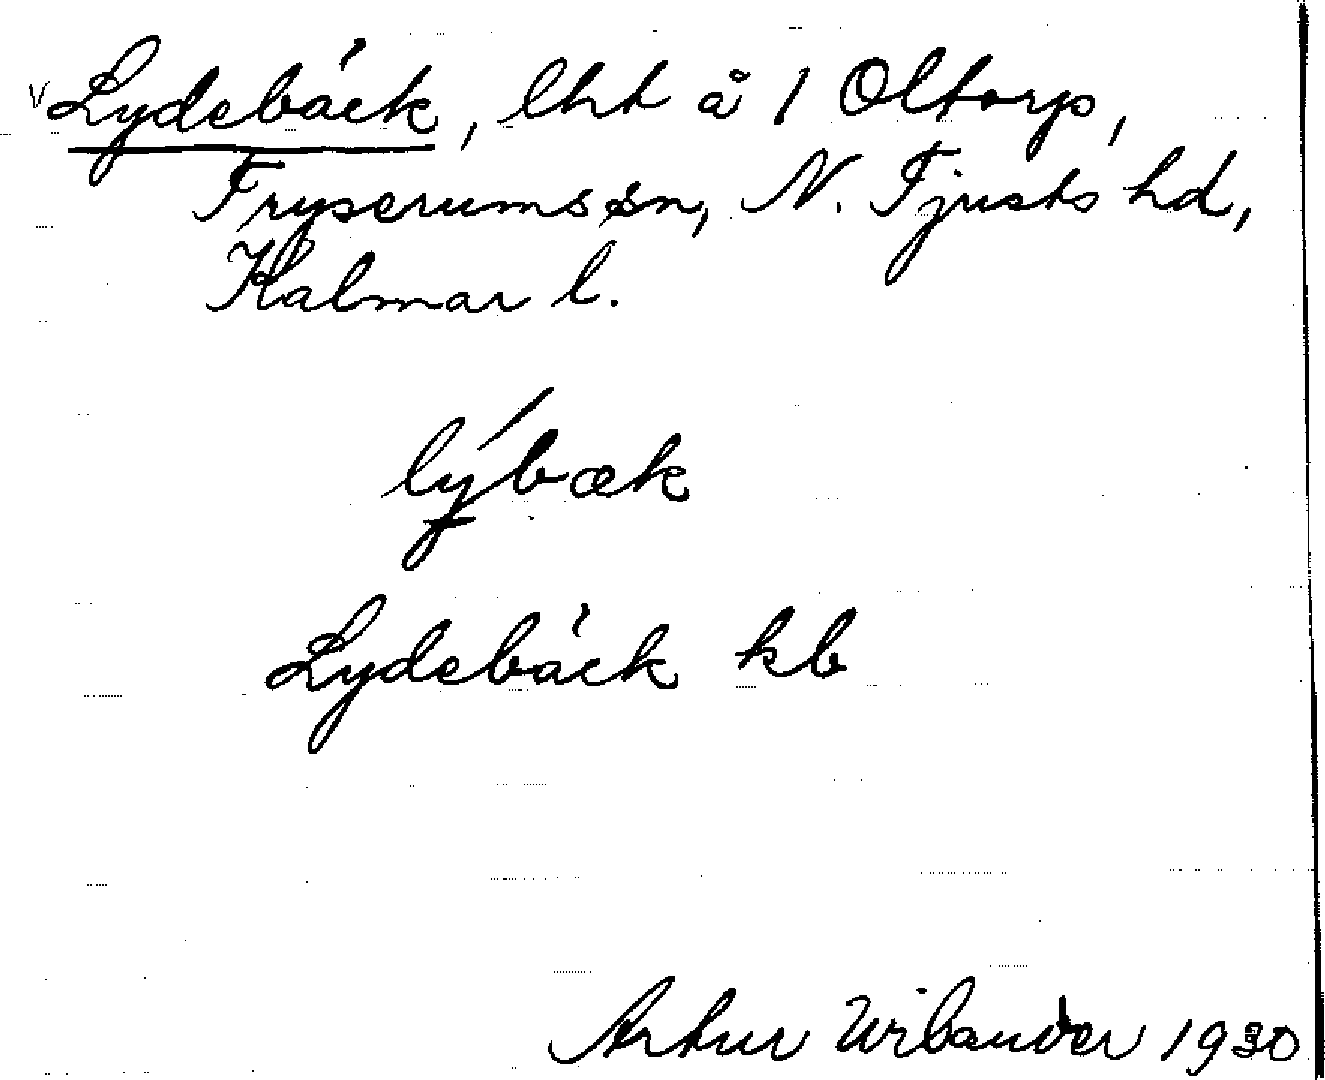 v Lydebäck, lht å 1 Oltorp,
Fryserums sn, N. Tjusts hd,
Kalmar l.
lýbæk
Lydebäck kb
Artur Wilander 1930